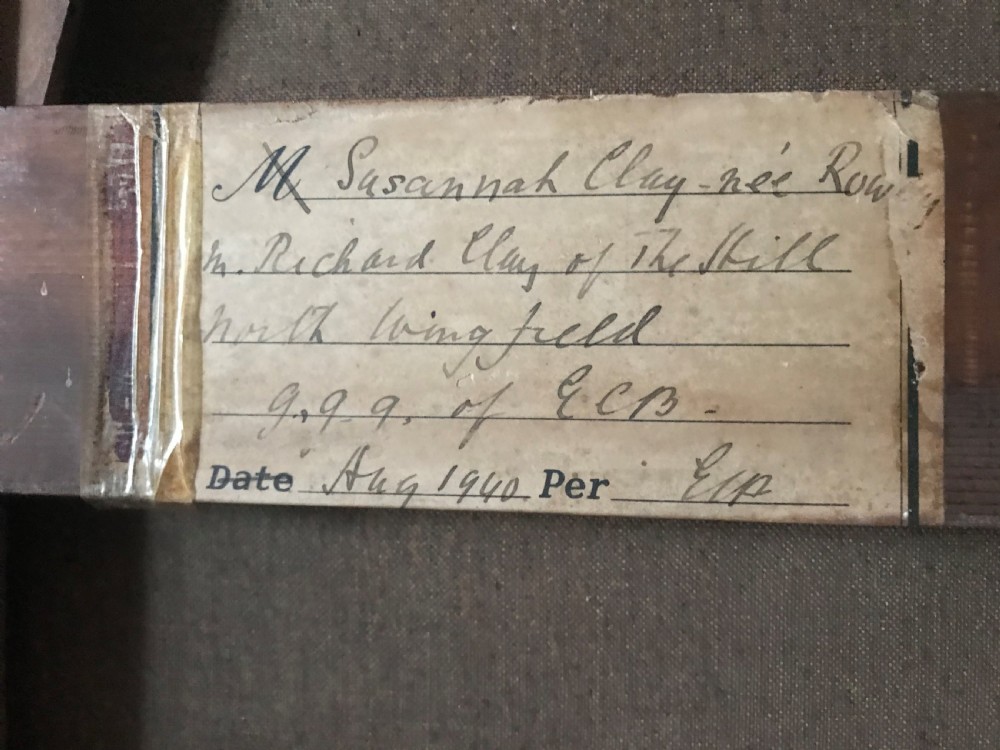 M Susannah Clay - née
m. Richard Clay of The Hill
North Wingfield
g. g. g. of ECB -
Date Aug 1940 Per ECB